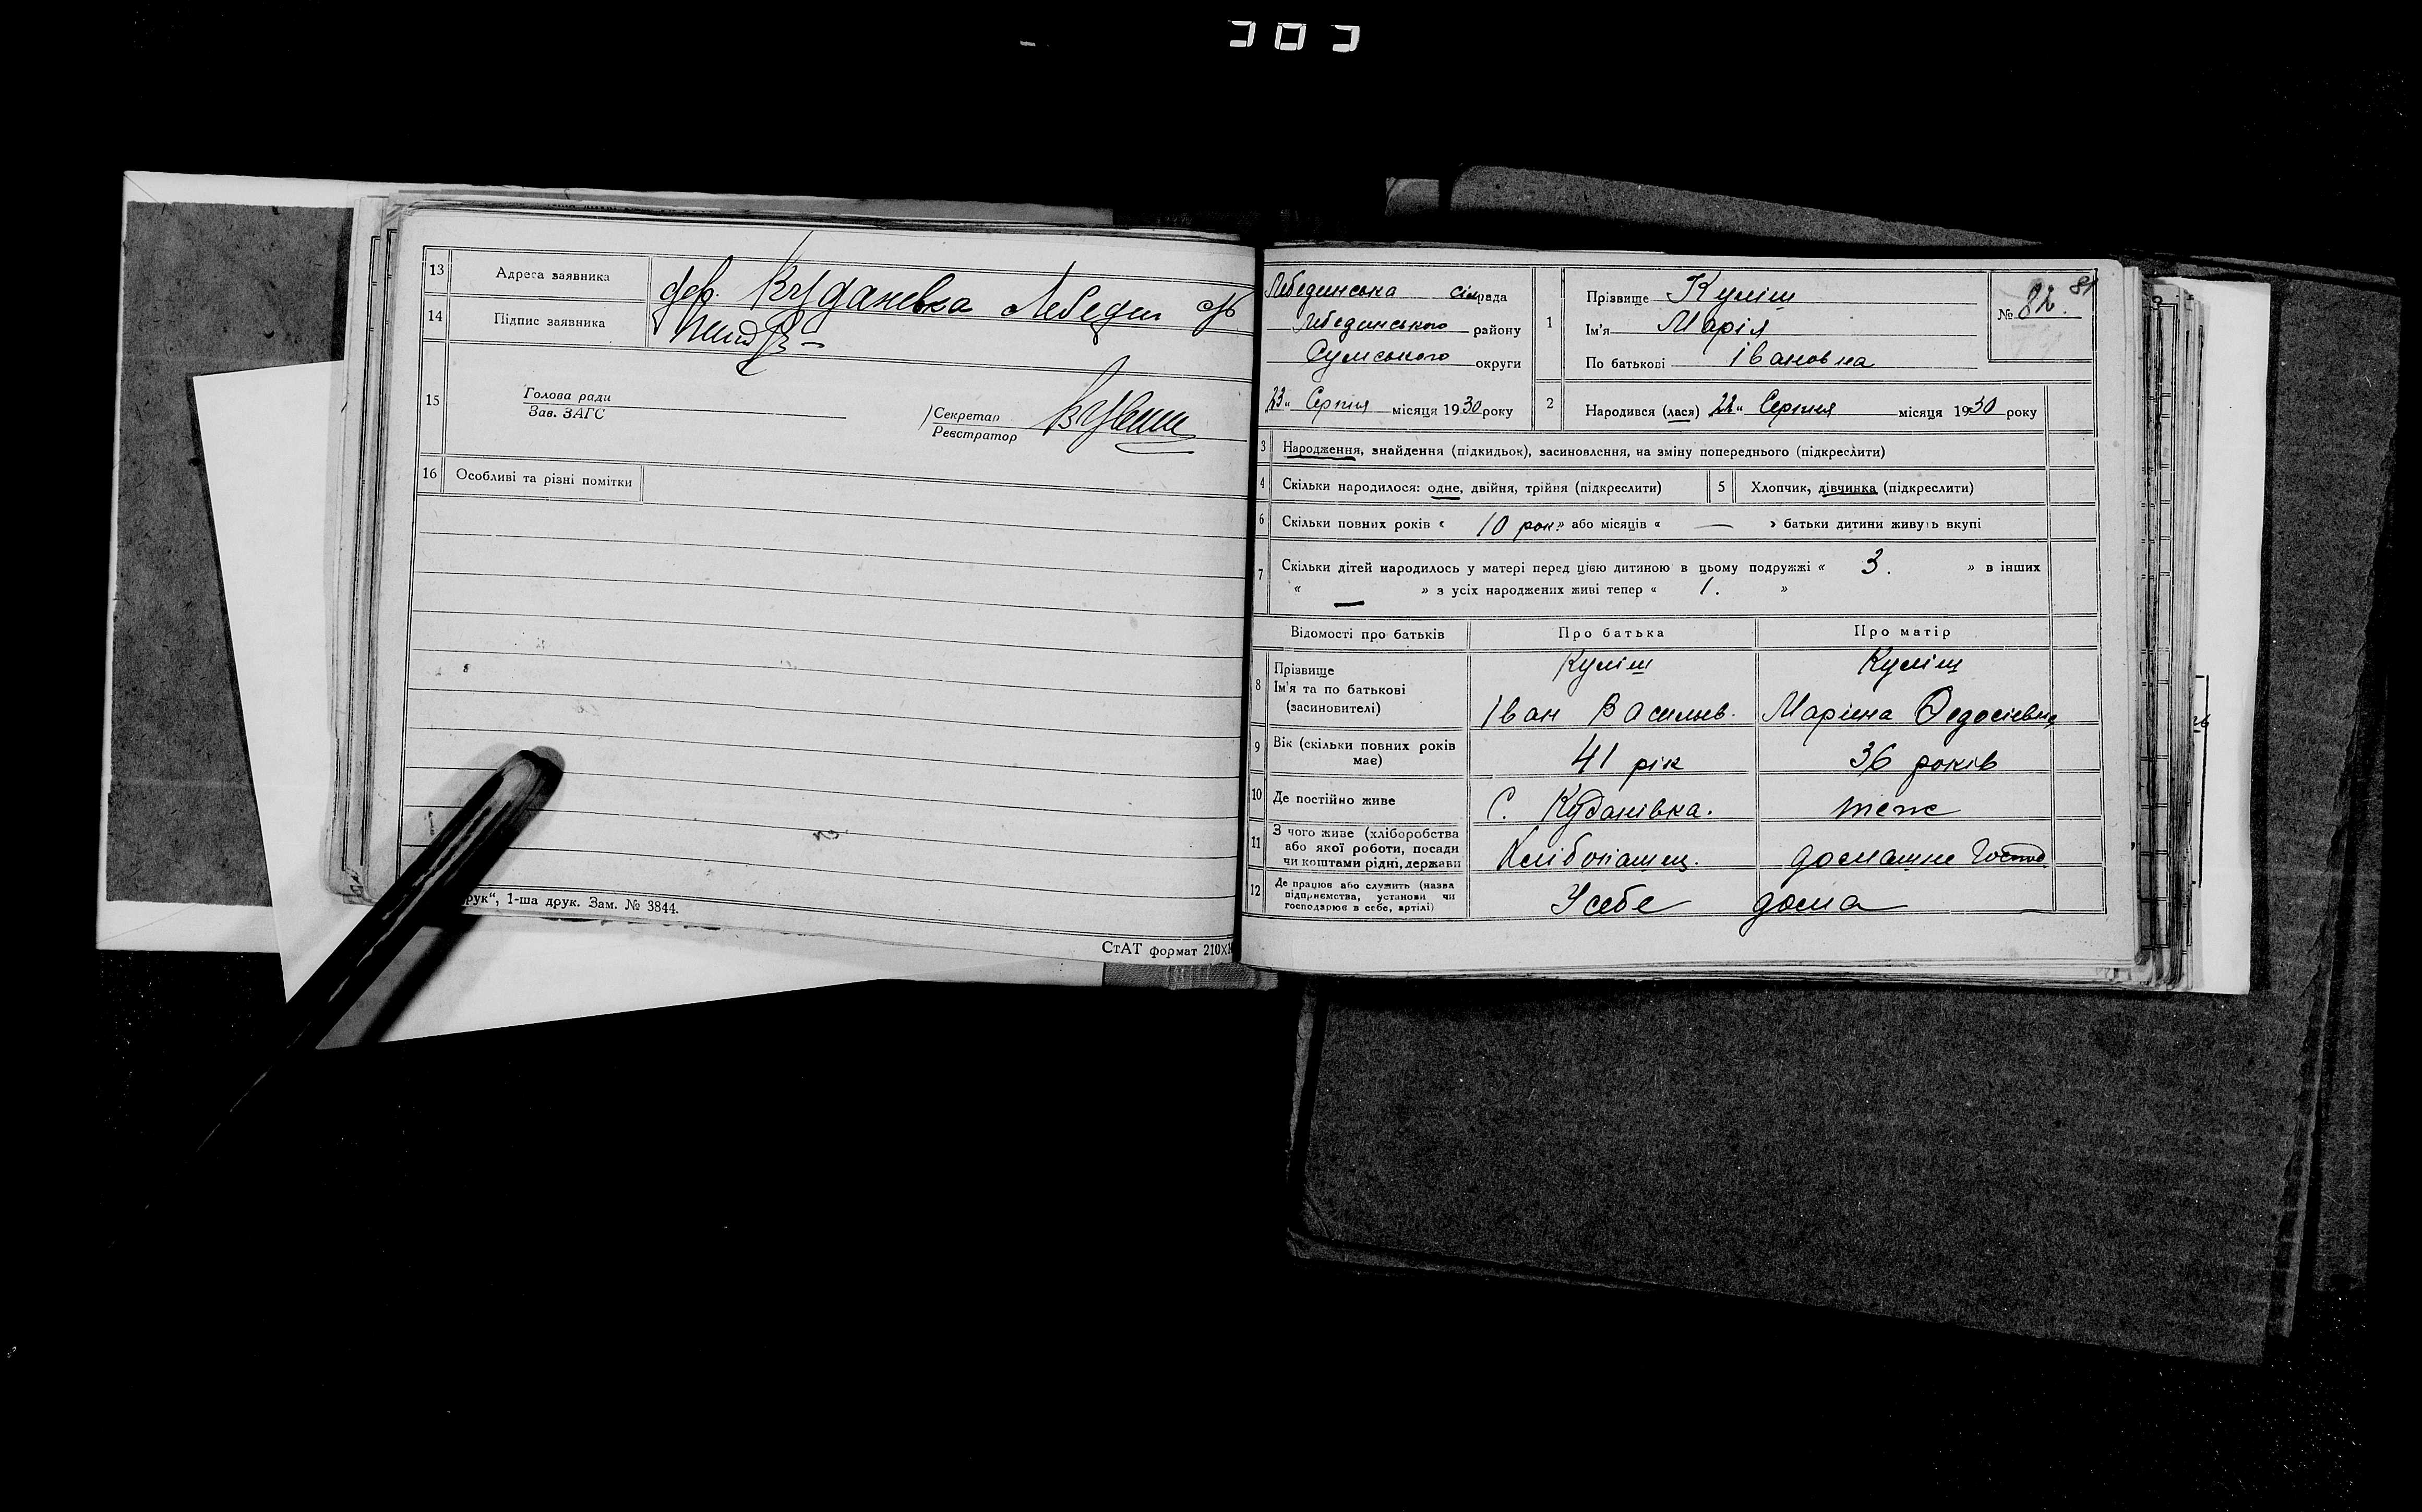 13 Адреса заявника дер. Кудановка Лебедин
14 Підпис заявника
15 Голова ради
Зав. ЗАГС
Секретар
Реєстратор
16 Особливі та різні помітки
рук“, 1-ша друк. Зам. № 3844.
СтАТ формат 210×
Лебединська сільрада
Лебединського району
Сумського округи
23 „ Серпня місяця 1930 року
1 Прізвище Куліш
Ім'я Марія
По батькові Івановна
№ 82. 81
2 Народився (лася) 22 „ Серпня місяця 1930 року
3 Народження, знайдення (підкидьок), засиновлення, на зміну попереднього (підкреслити)
4 Скільки народилося: одне, двійня, трійня (підкреслити) 5 Хлопчик, дівчинка (підкреслити)
6 Скільки повних років « 10 рок. » або місяців « — » батьки дитини живуть вкупі
7 Скільки дітей народилось у матері перед цією дитиною в цьому подружжі « 3. » в інших
« — » з усіх народжених живі тепер « 1. »
Відомості про батьків Про батька Про матір
8 Прізвище Куліш Куліш
Ім'я та по батькові
(засиновителі) Іван Васильев. Марина Федосіевна
9 Вік (скільки повних років
має) 41 рік 36 років
10 Де постійно живе С. Куданівка. теж
11 З чого живе (хліборобства
або якої роботи, посади
чи коштами рідні, держави Хлібопашец. домашне господ
12 Де працює або служить (назва
підприємства, установи чи
господарює в себе, артілі) У себе дома